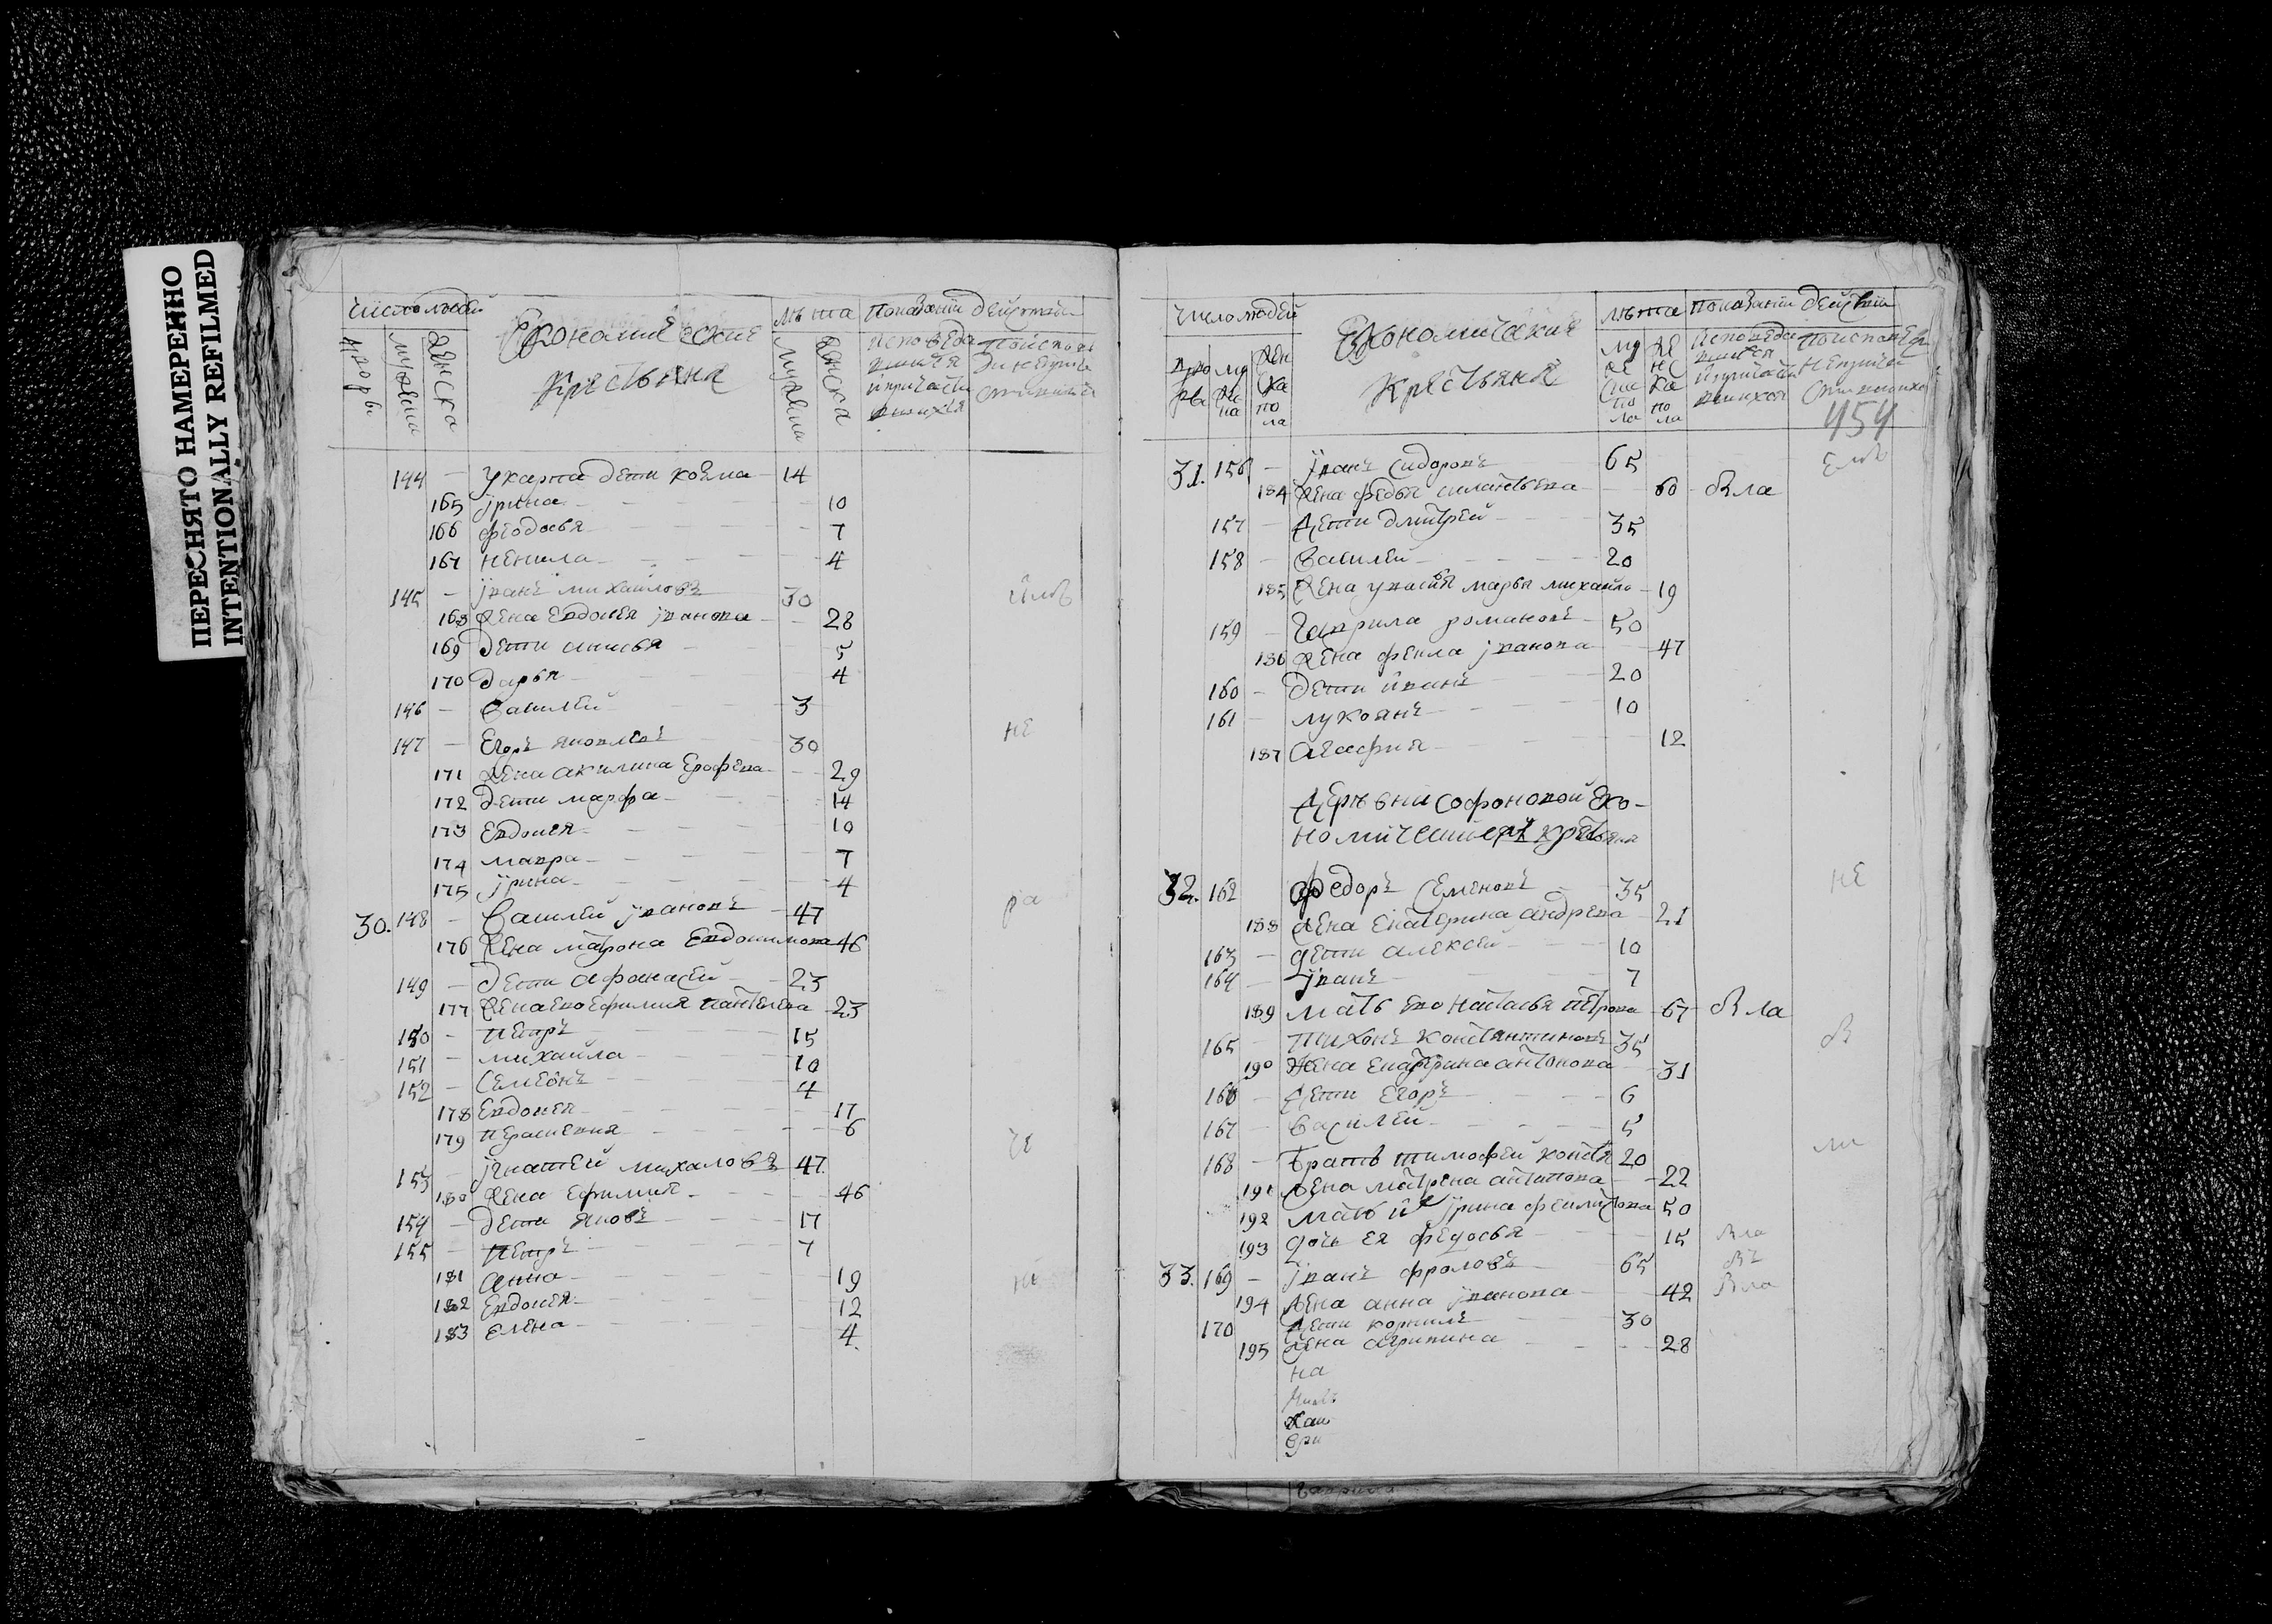 ПЕРЕСНЯТО НАМЕРЕННО
INTENTIONALLY REFILMED
число людей
Економические
крестьяне
лѣта
показании действа
дворовъ
мужеска
женска
мужеска
женска
144 – у карпа дети козма 14
165 ирина 10
166 феодосья 7
167 ненила 4
145 – іванъ михаиловъ 30
168 жена евдокея іванова 28
169 дети анисья 5
170 дарья 4
146 – василей 3
147 – егоръ яковлевъ 30 не
171 жена акилина ерофеева 29
172 дети марфа 14
173 евдокея 10
174 мавра 7
175 ирина 4
30. 148 – василей івановъ 47 ра
176 жена матрона евдокимова 46
149 – дети афонасей 23
177 жена ево ефимия пантелева 23
150 – петръ 15
151 – михайла 10
152 – семеонъ 4
178 евдокея 17
179 перасковия 6
153 – игнатей михаловъ 47
180 жена ефимия 46
154 – дети яковъ 17
155 – петръ 7
181 анна 19
182 евдокея 12
183 елена 4
число людей
Економическия
крестьяне
лѣта
показании действа
454
31. 156 – іванъ сидоровъ 65
184 жена федосья силантьева 60 вла
157 – дети дмитрей 35
158 – василей 20
185 жена у василья марья михайло 19
159 – гаврила романовъ 50
186 жена фекла іванова 47
160 – дети иванъ 20
161 – лукоянъ 10
187 агафия 12
деревни софоновой еко-
номическия крестьяня
32. 162 федоръ семеновъ 35 не
188 жена екатерина андреева 21
163 – дети алексей 10
164 – іванъ 7
189 мать ево настасья петрова 67 вла
165 – тихонъ константиновъ 35
190 жена екатерина антонова 31
166 – дети егоръ 6
167 – василей 5
168 – братъ тимофей конста 20
191 жена матрена антипова 22
192 мать их ирина феклистова 50
193 дочь ея федосья 15 вла
33. 169 – іванъ фроловъ 65
194 жена анна іванова 42 вла
170 дети корнилъ 30
195 жена агрипина 28
на
гаврила